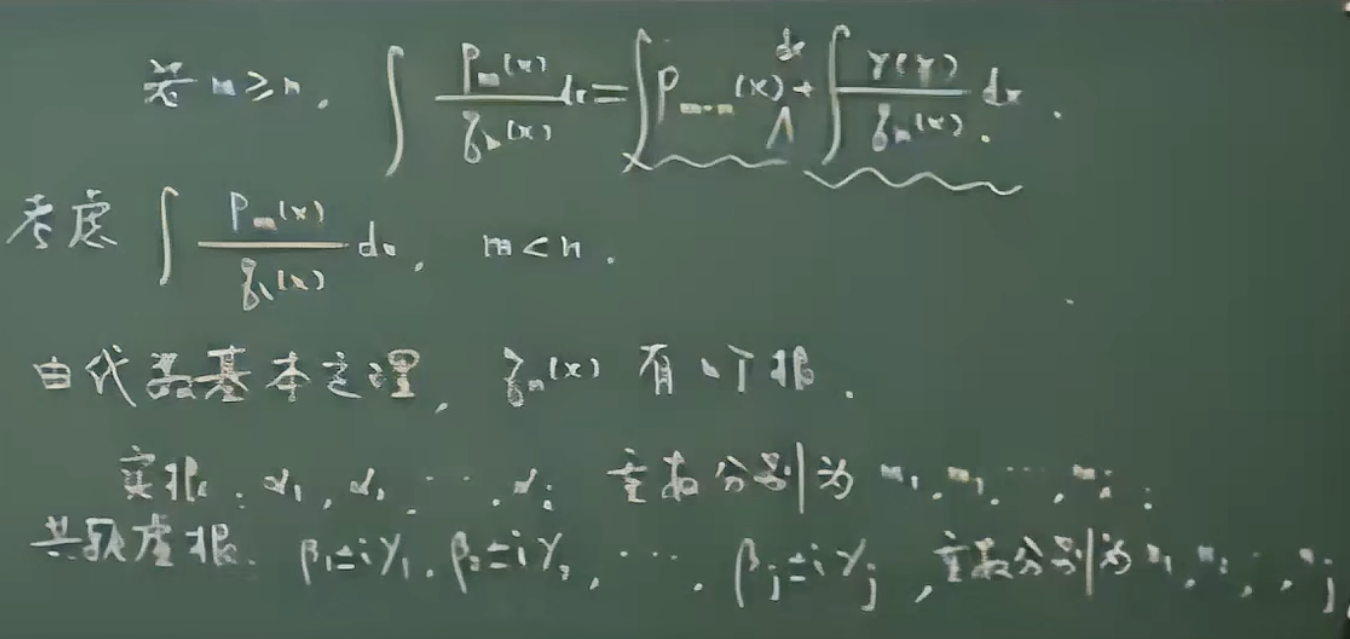 若 m ≥ n, ∫ P_m(x)/q_n(x) dx = ∫ P_{m-n}(x) dx + ∫ r(x)/q_n(x) dx.
考虑 ∫ P_m(x)/q_n(x) dx, m < n.
由代数基本定理, q_n(x) 有 n 个根.
实根: α₁, α₂, …, α_i 重数分别为 m₁, m₂, …, m_i;
共轭虚根: β₁ ± iγ₁, β₂ ± iγ₂, …, β_j ± iγ_j, 重数分别为 n₁, n₂, …, n_j